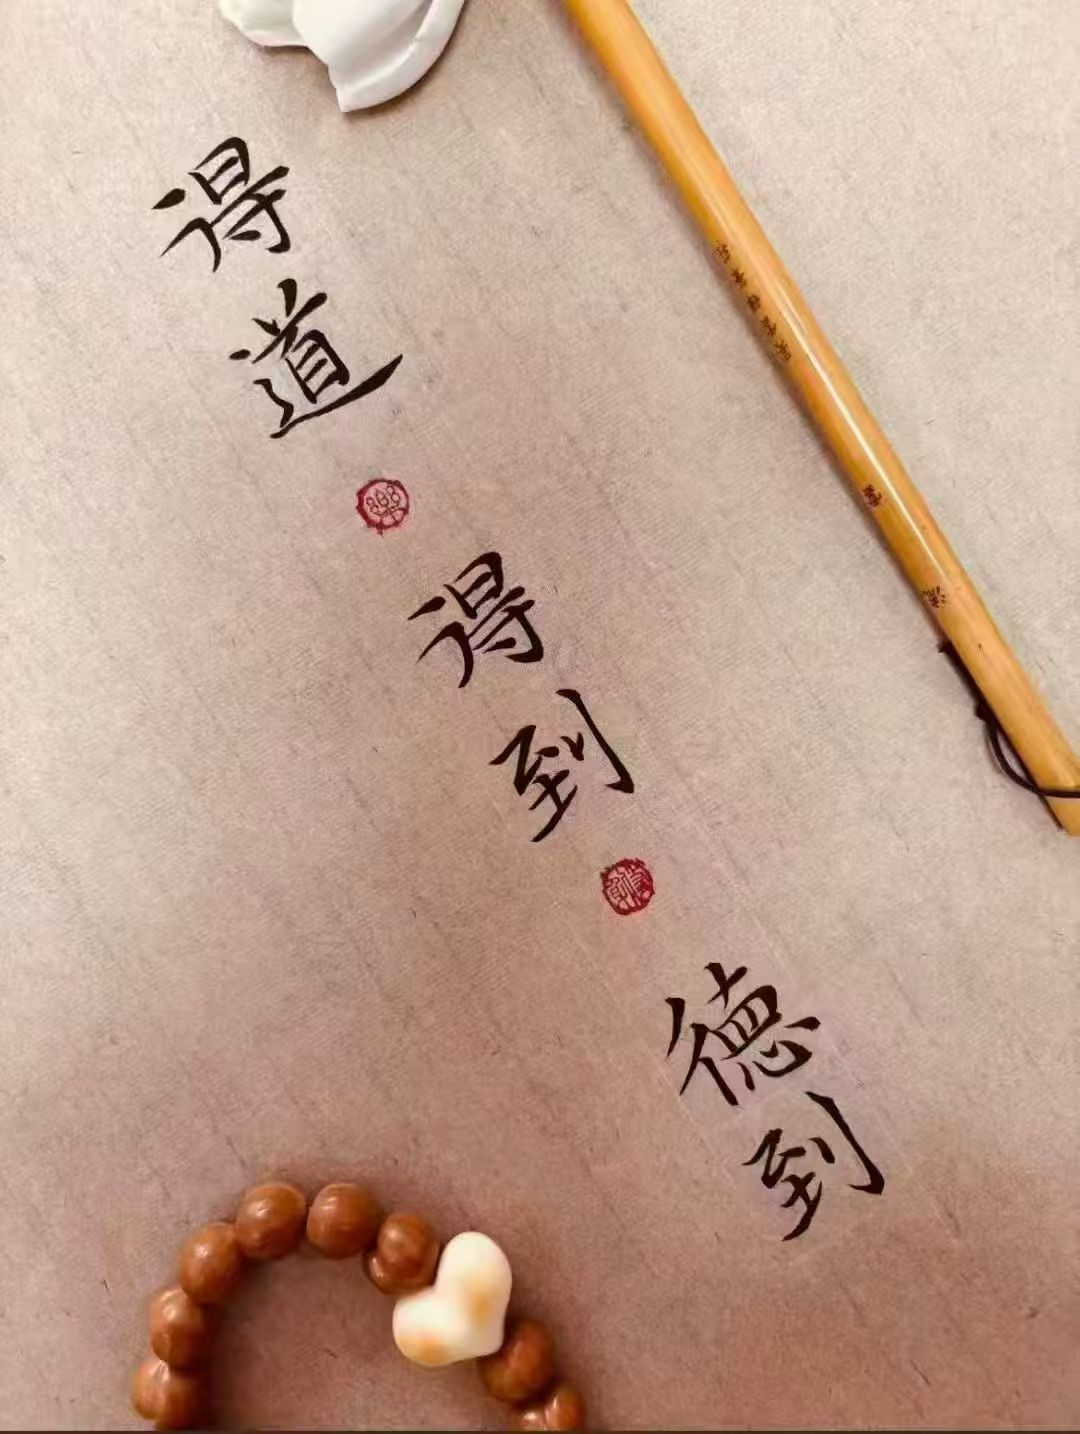 得道
得到
德到